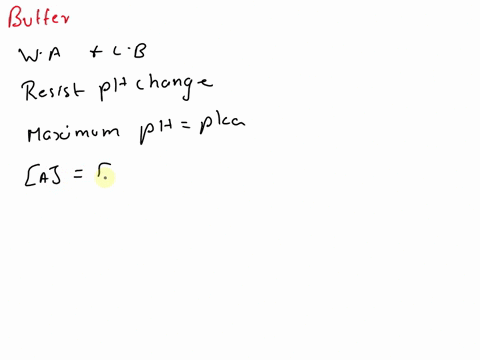 Buffer
W.A + C.B
Resist pH change
Maximum pH = pka
[A] = [